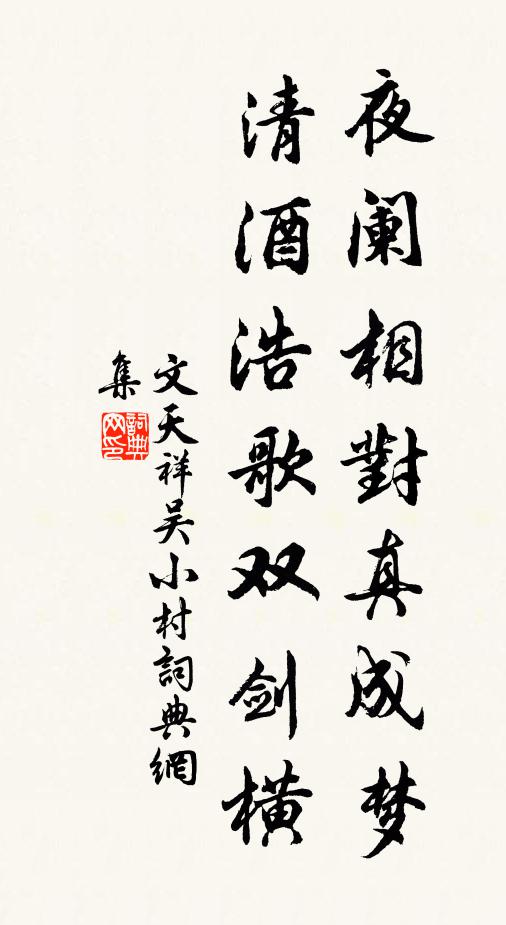 夜阑相對真成梦
清酒浩歌双剑橫
文天祥吴小村詞典網
集
詞典网印